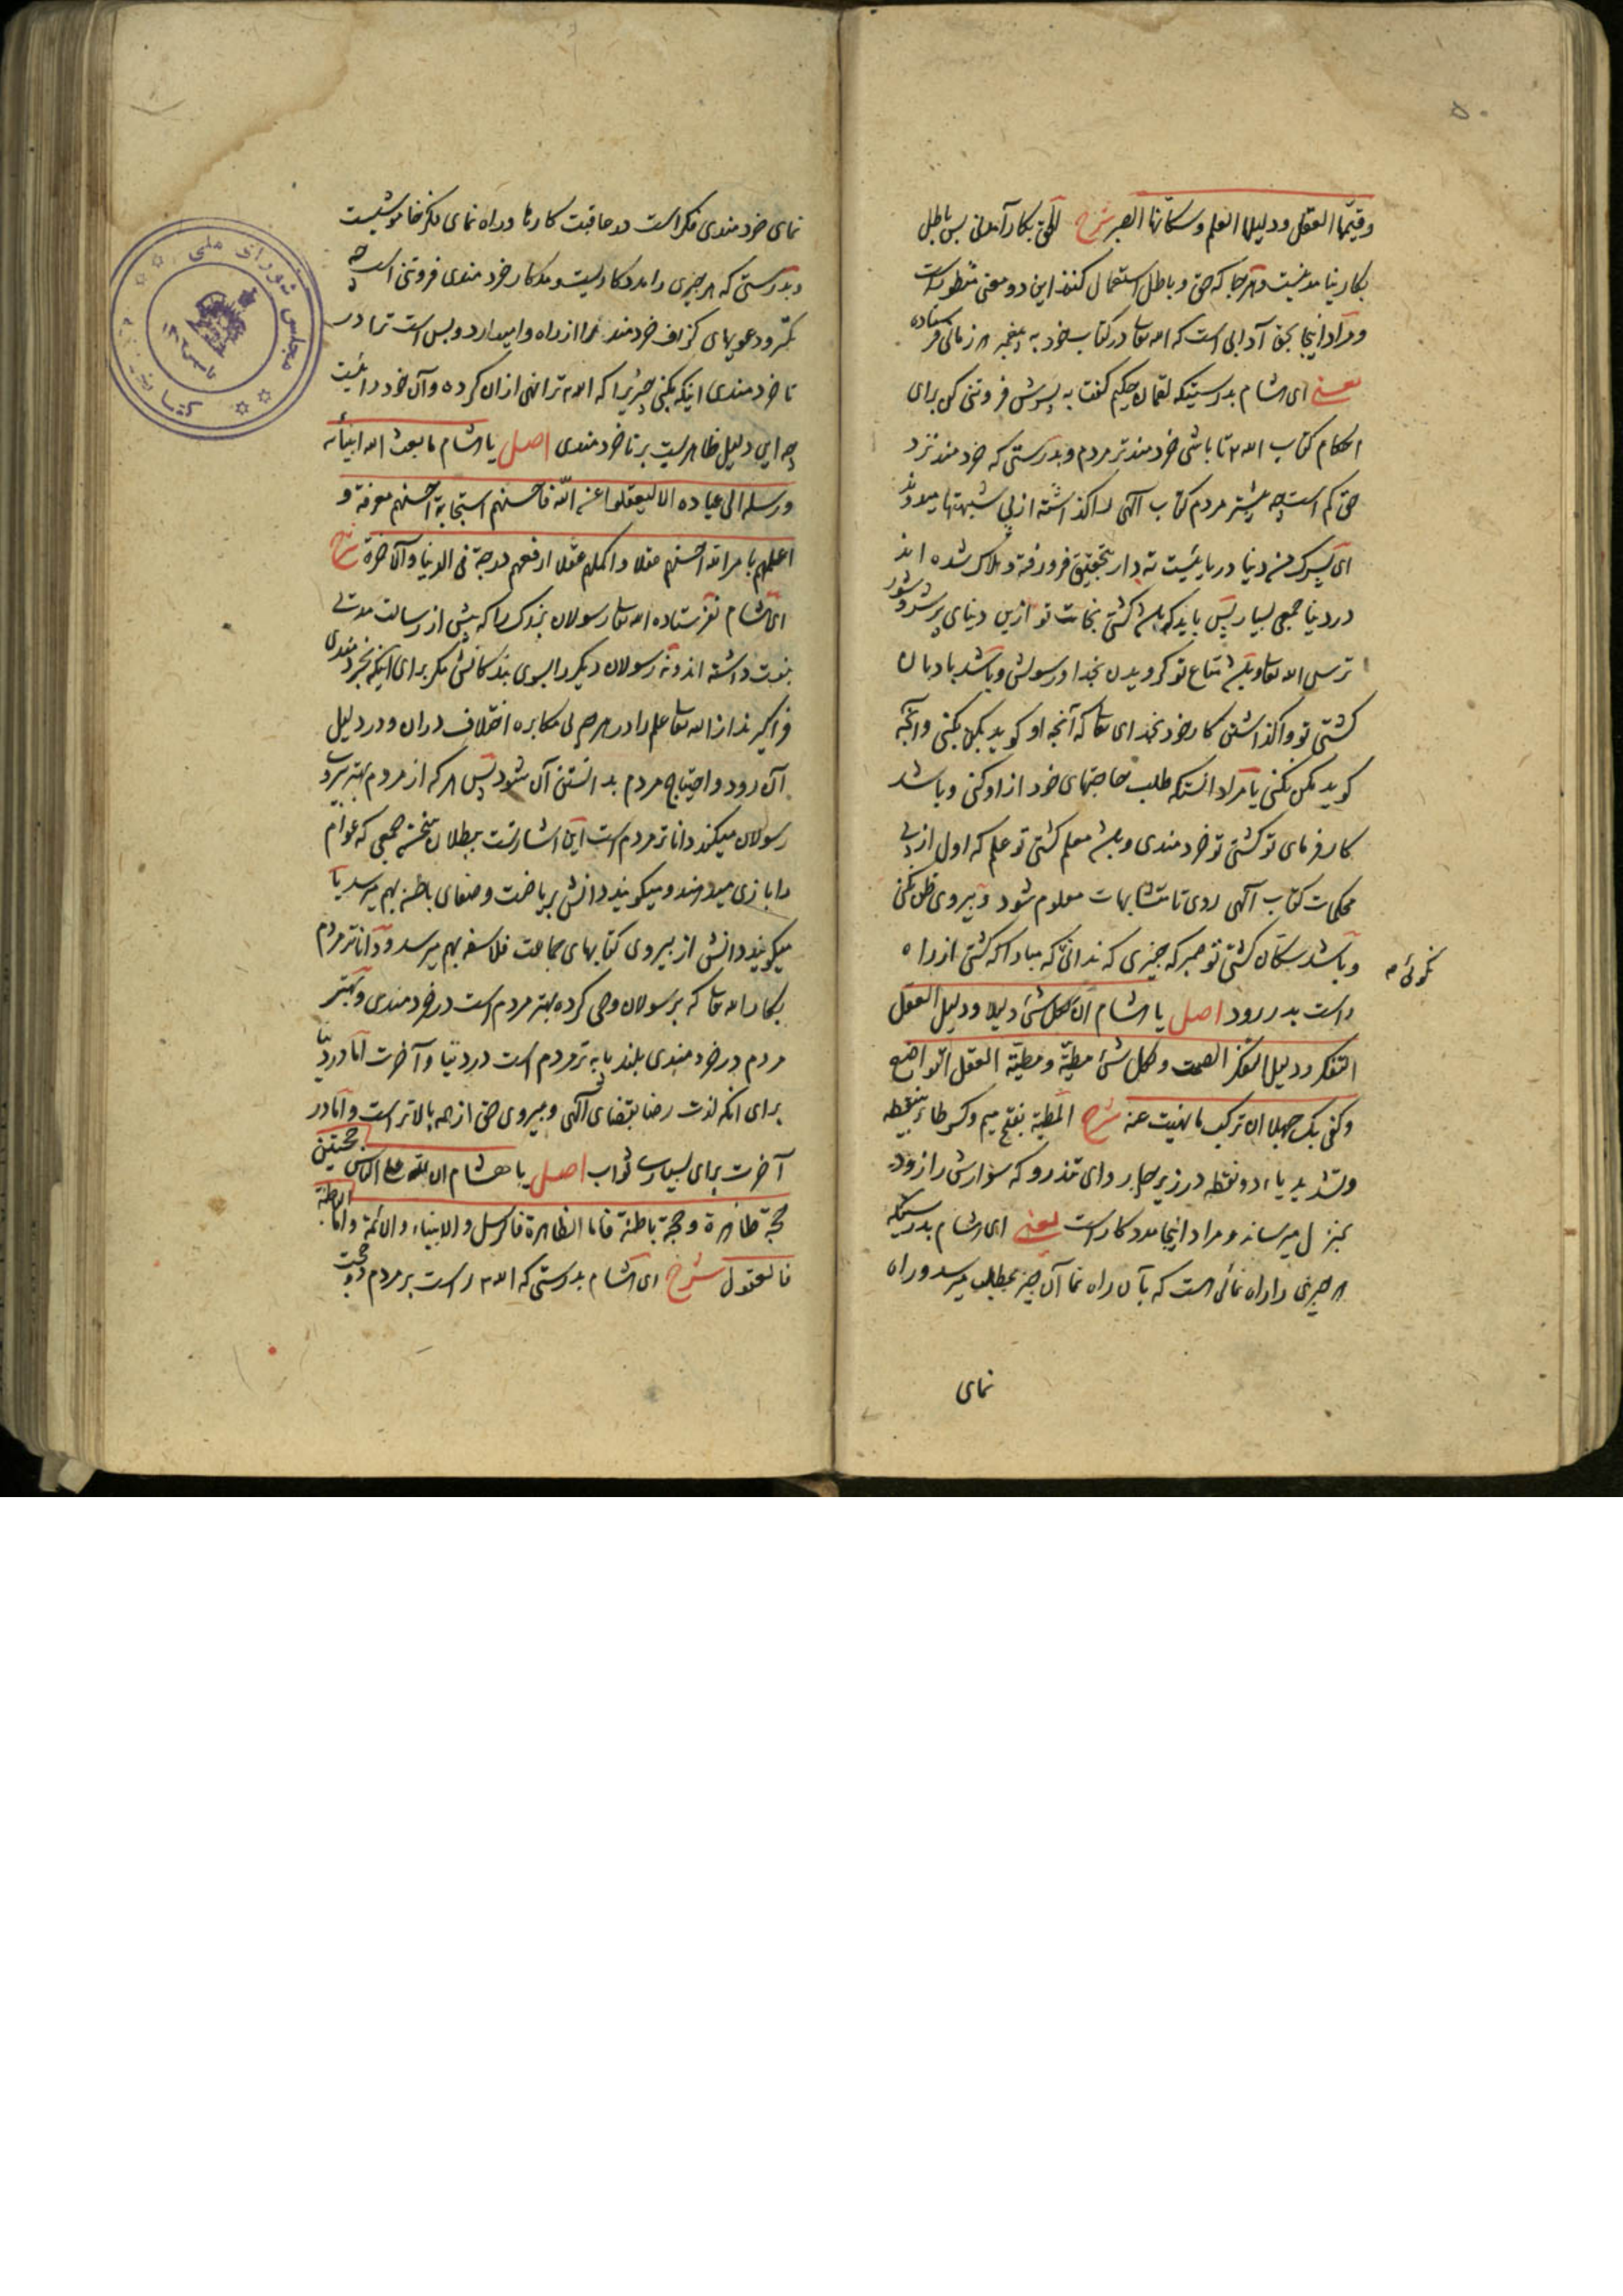 وقیّمها العقل ودلیلها العلم وسکّانها الصبر شرح الحق بکار آمدنی پس باطل
بکار نیامدنیست وهر جا که حق و باطل استعمال کنند این دو معنی منظور است
ومراد اینجا بحق آدابی است که الله تعا در کتاب خود به پیغمبر هر زمانی فرستاده
یعنی ای هشام بدرستیکه لقمان حکیم گفت به پسرش فروتنی کن برای
احکام کتاب الله تا باشی خردمندتر مردم وبدرستی که خردمند نزد
حق کم است چه بیشتر مردم کتاب آلهی را گذاشته از پی شبهتها میروند
ای پسرک من دنیا دریاییست ته دار بتحقیق فرو رفته و هلاک شده اند
در دنیا جمعی بسیار پس باید که باشد کشتی نجات تو ازین دنیای پر شر وشور
ترس الله تعا وباشد متاع تو کرویدن بخدا ورسولش وباشد بادبان
کشتی تو واگذاشتن کار خود بخدای تعا که آنچه او کوید بکن بکنی وانچه
کوید مکن نکنی یا مراد انستکه طلب حاجتهای خود از او کنی وباشد
کارفرمای تو کشتی تو خردمندی وباشد معلم کشتی تو علم که اول از پی
محکمات کتاب آلهی روی تا متشابهات معلوم شود وپیروی ظن نکنی
وباشد سکّان کشتی تو صبر که چیزی که ندانی که مبادا که کشتی از راه
نکوئی صح
راست بدر رود اصل یا هشام انّ لکل شئ دلیلا ودلیل العقل
التفکر ودلیل التفکر الصمت ولکل شئ مطیّة ومطیّة العقل التواضع
وکفی بک جهلا ان ترکب ما نهیت عنه شرح المطیّة بفتح میم وکسر طاء بینقطه
وتشدید یاء دو نقطه در زیر چاروای تندرو که سوارش را زود
بمنزل میرساند ومراد اینجا مددکار است یعنی ای هشام بدرستیکه
هر چیزی را راه نمائی است که بآن راه نما آن چیز بمطلب میرسد وراه
نمای
نمای خردمندی فکر است در عاقبت کارها وراه نمای فکر خاموشیست
وبدرستی که هر چیزی را مددکاریست ومددکار خردمندی فروتنی است چه
تکبر ودعویهای کزاف خردمند را از راه وامیدارد وبس است ترا در
نا خردمندی اینکه بکنی چیزیرا که الله ترا نهی ازان کرده وآن خود رائیست
چه این دلیل ظاهریست بر نا خردمندی اصل یا هشام ما بعث الله انبیائه
ورسله الی عباده الا لیعقلوا عن الله فاحسنهم استجابة احسنهم معرفة و
اعلمهم بامر الله احسنهم عقلا واکملهم عقلا ارفعهم درجة فی الدنیا والآخرة شرح
ای هشام نفرستاده الله تعا رسولان بزرک را که پیش از رسالت مدتی
نبوت داشته اند ونه رسولان دیکر را بسوی بندکانش مکر برای اینکه بخردمندی
فرا گیرند از الله تعا علم را در هر چه بی مکابره اختلاف دران ودر دلیل
آن رود واحتیاج مردم بدانستن آن شود پس هر که از مردم بهتر پیروی
رسولان میکند داناتر مردم است این اشارتست ببطلان جمعی که عوام
را بازی میدهند ومیکویند دانش بریاضت وصفای باطن بهم میرسد یا
میکویند دانش از پیروی کتابهای جماعت فلاسفه بهم میرسد وداناتر مردم
بکار الله تعا که برسولان وحی کرده بهتر مردم است در خردمندی وبهتر
مردم در خردمندی بلند پایه تر مردم است در دنیا وآخرت اما در دنیا
برای انکه لذت رضا بقضای آلهی وپیروی حق از همه بالاتر است واما در
آخرت برای بسیاری ثواب اصل یا هشام ان لله علی الناس حجتین
حجّة ظاهرة وحجة باطنة فاما الظاهرة فالرسل والانبیاء والائمة واما الباطنة
فالعقول شرح ای هشام بدرستی که الله راست بر مردم دو حجت
مجلس شورای ملی